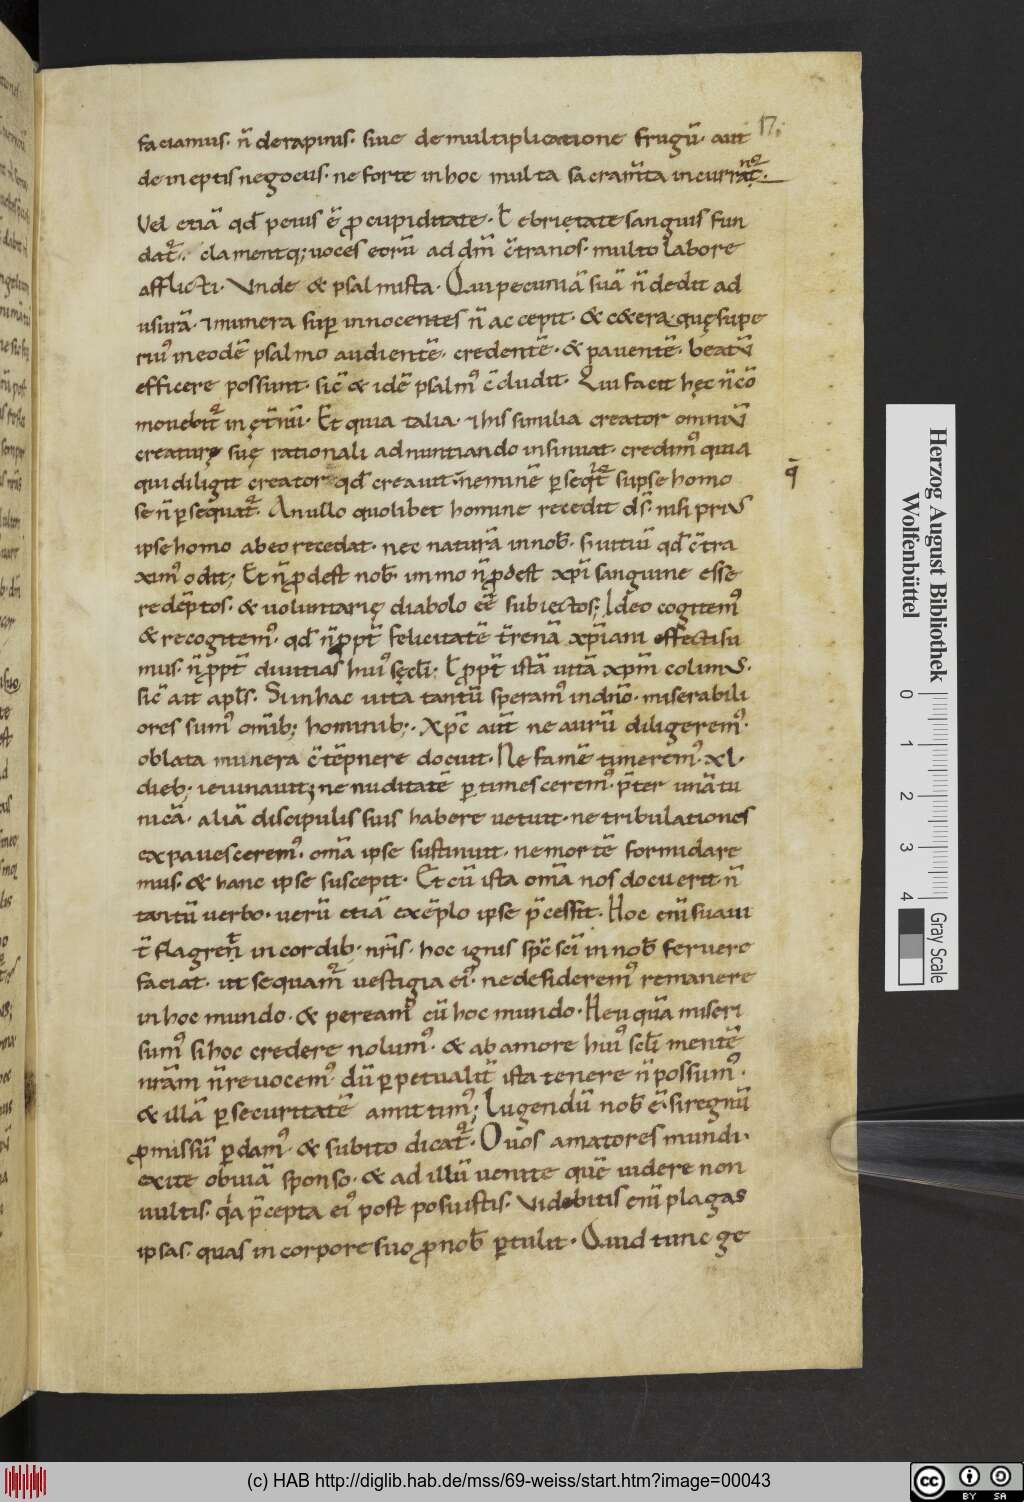 17.
faciamus· n̄ de rapinis· siue de multiplicatione frugū· aut
de ineptis negociis· ne forte in hoc multa sacram̄ta incurrat᷑·
Vel etiā qd̄ peius ē ꝓ cupiditate· ł ebrietate sanguis fun
dat᷑· clamentq; uoces eorū ad dn̄m c̄tra nos· multo labore
afflicti· Vnde & psalmista· Qui pecuniā suā n̄ dedit ad
usurā· ⁊ munera sup innocentes n̄ accepit· & cetera quę supe
riꝰ in eodē psalmo audientē· credentē· & pauentē· beatū
efficere possunt· sic̄ & idē psalmꝰ c̄cludit· Qui facit hęc n̄ cō
mouebit᷑ in ęt̄nū· Et quia talia· ⁊ his similia creator omniū
creaturę suę rationali adnuntiando insinuat· credimꝰ quia
qui diligit creator qd̄ creauit· neminē ꝑseqt᷑ si ipse homo
se n̄ ꝑsequat᷑· A nullo quolibet homine recedit ds̄· nisi prius
ipse homo ab eo recedat· nec naturā in nob̄· s; uitiū qd̄ c̄tra
ximꝰ odit; Et n̄ ꝓdest nob̄· immo n̄ ꝓdest xp̄i sanguine esse
redēptos· & uoluntarię diabolo eē subiectos; Ideo cogitemꝰ
& recogitemꝰ· qd̄ n̄ ꝓpt̄ felicitatē t̄renā xp̄iani effecti su
mus· n̄ ꝓpt̄ diuitias huiꝰ sęcl̄i; ł ꝓpt̄ istā uitā xp̄m colimus·
sic̄ ait apl̄s· Si in hac uita tantū speramꝰ in dn̄o· miserabili
ores sumꝰ om̄ib; hominib;· Xp̄c aut̄ ne aurū diligeremꝰ·
oblata munera c̄tēpnere docuit· Ne famē timeremꝰ· xl·
dieb; ieiunauit; ne nuditatē ꝑtimesceremꝰ· p̄ter unā tu
nicā· aliā discipulis suis habere uetuit· ne tribulationes
expauesceremꝰ· om̄a ipse sustinuit· ne mortē formidare
mus· & hanc ipse suscepit· Et cū ista om̄a nos docuerit n̄
tantū uerbo· uerū etiā exēplo ipse p̄cessit· Hoc eni̅ suaui
t̄ flagren̄t in cordib; nr̄is· hoc ignis sp̄c sc̄i in nob̄ feruere
faciat· ut sequam᷑ uestigia eiꝰ· ne desideremꝰ remanere
in hoc mundo· & pereamꝰ cū hoc mundo· Heu quā miseri
sumꝰ si hoc credere nolumꝰ· & ab amore huiꝰ scl̄i mentē
nr̄am n̄ reuocemꝰ· dū ꝑpetualit̄ ista tenere n̄ possumꝰ·
& illā ꝑ securitatē amittimꝰ; Lugendū nob̄ ē· si regnū
ꝓmissū ꝑdamꝰ· & subito dicat᷑· O uos amatores mundi·
exite obuiā sponso· & ad illū uenite quē uidere non
uultis· qa p̄cepta eiꝰ post posuistis· Videbitis eni̅ plagas
ipsas· quas in corpore suo ꝓ nob̄ ꝑtulit· Quid tunc ge
q̄
Herzog August Bibliothek
Wolfenbüttel
0 1 2 3 4
Gray Scale
(c) HAB http://diglib.hab.de/mss/69-weiss/start.htm?image=00043
cc BY SA